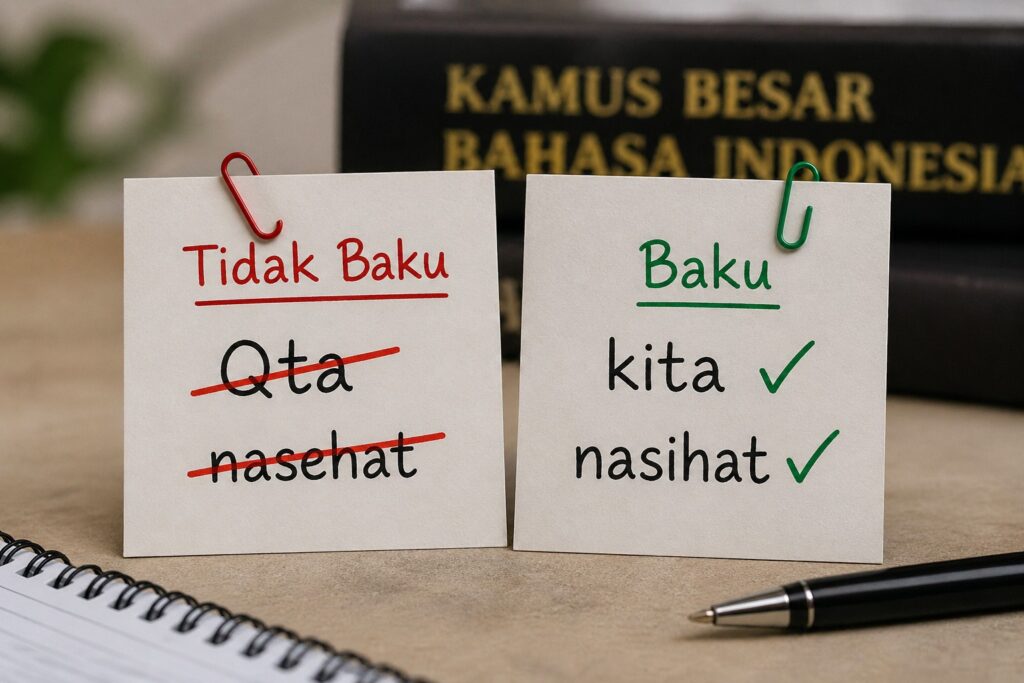 KAMUS BESAR
BAHASA INDONESIA
Tidak Baku
Qta
nasehat
Baku
kita
nasihat